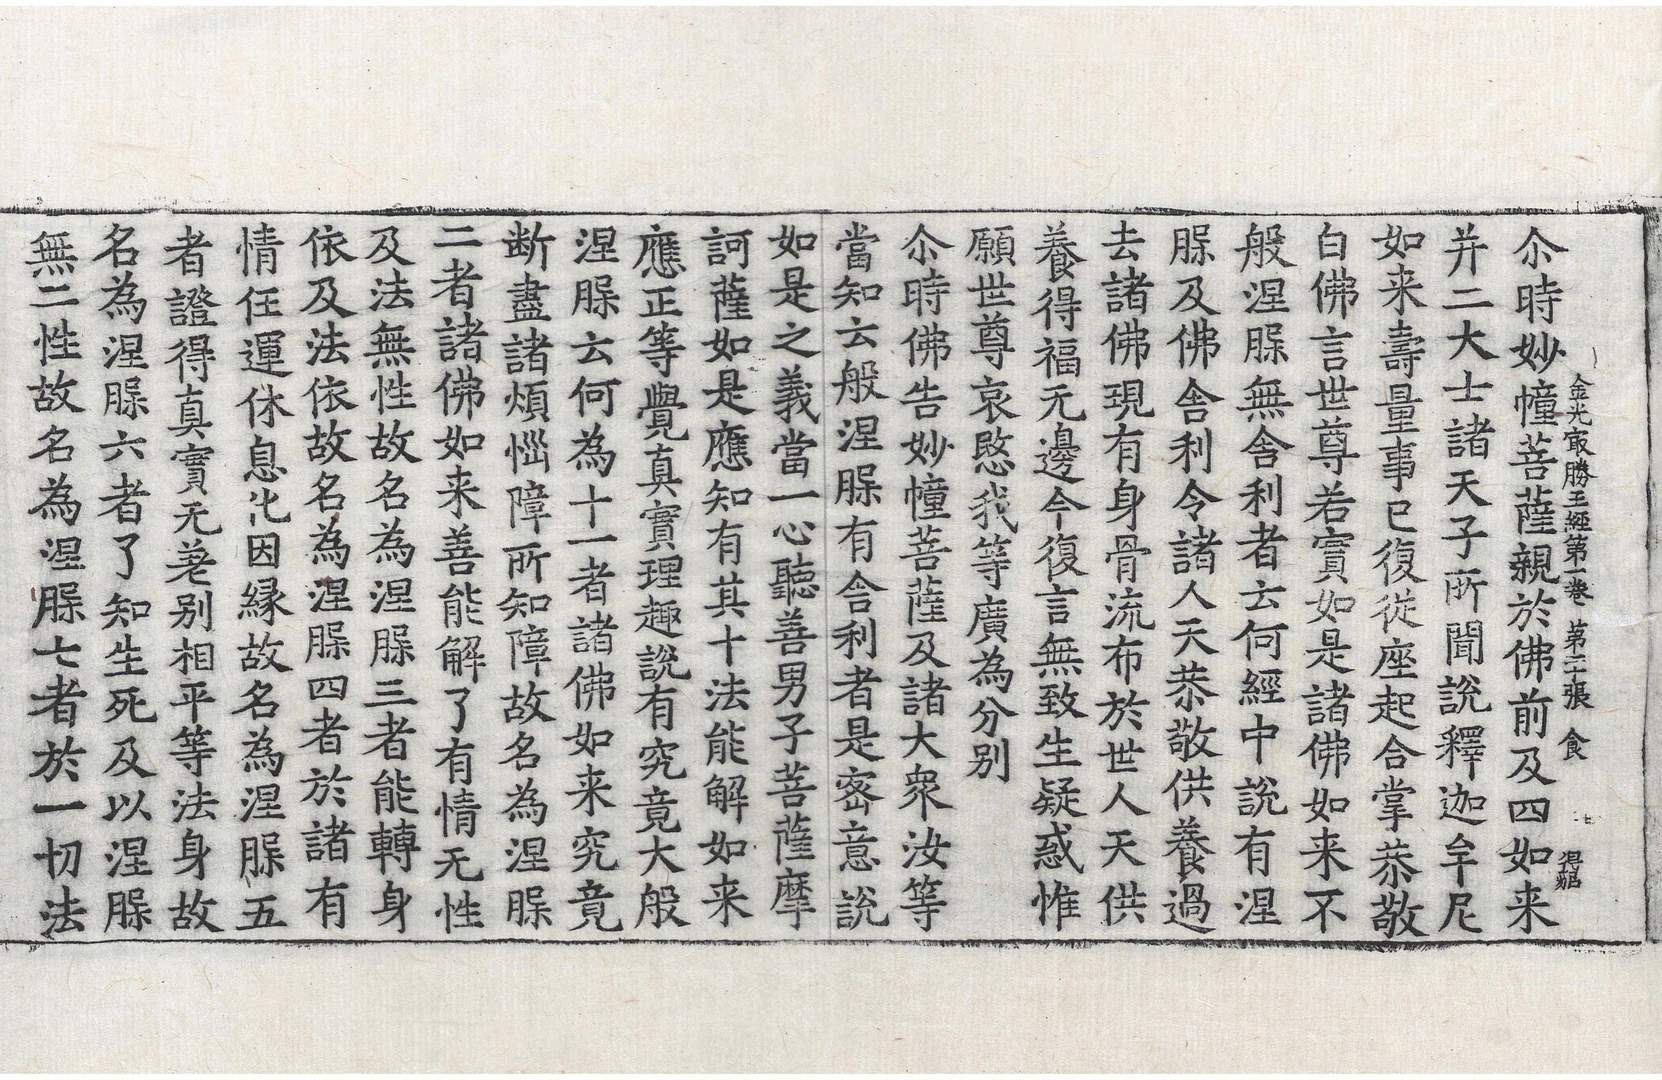 金光冣勝王經第一卷 第二十張 食
尒時妙幢菩薩親於佛前及四如来
并二大士諸天子所聞說釋迦牟尼
如来壽量事已復從座起合掌恭敬
白佛言世尊若實如是諸佛如来不
般涅槃無舍利者云何經中說有涅
槃及佛舍利令諸人天恭敬供養過
去諸佛現有身骨流布於世人天供
養得福无邊今復言無致生疑惑惟
願世尊哀愍我等廣為分別
尒時佛告妙幢菩薩及諸大衆汝等
當知云般涅槃有舍利者是密意說
如是之義當一心聽善男子菩薩摩
訶薩如是應知有其十法能解如来
應正等覺真實理趣說有究竟大般
涅槃云何為十一者諸佛如来究竟
断盡諸煩惱障所知障故名為涅槃
二者諸佛如来善能解了有情无性
及法無性故名為涅槃三者能轉身
依及法依故名為涅槃四者於諸有
情任運休息化因緣故名為涅槃五
者證得真實无差別相平等法身故
名為涅槃六者了知生死及以涅槃
無二性故名為涅槃七者於一切法